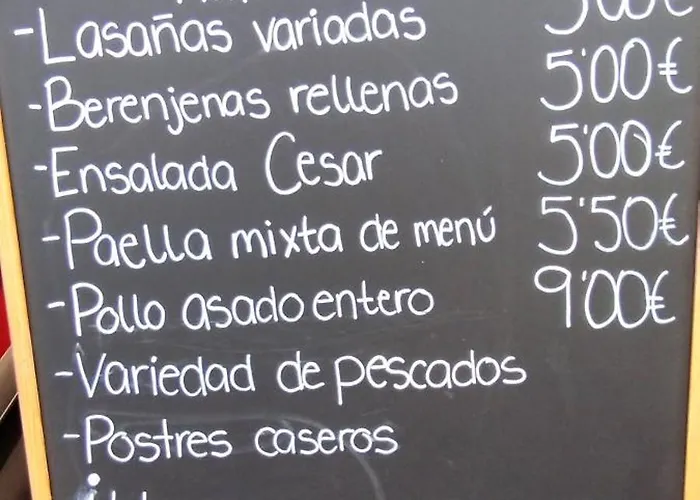 -Lasañas variadas 5'00€
-Berenjenas rellenas 5'00€
-Ensalada Cesar 5'00€
-Paella mixta de menú 5'50€
-Pollo asado entero 9'00€
-Variedad de pescados
-Postres caseros